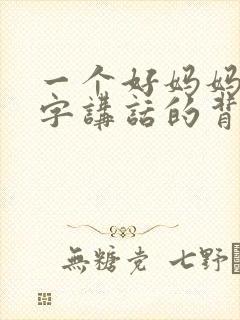 一个好妈妈
字講話的背
無糖党 七野